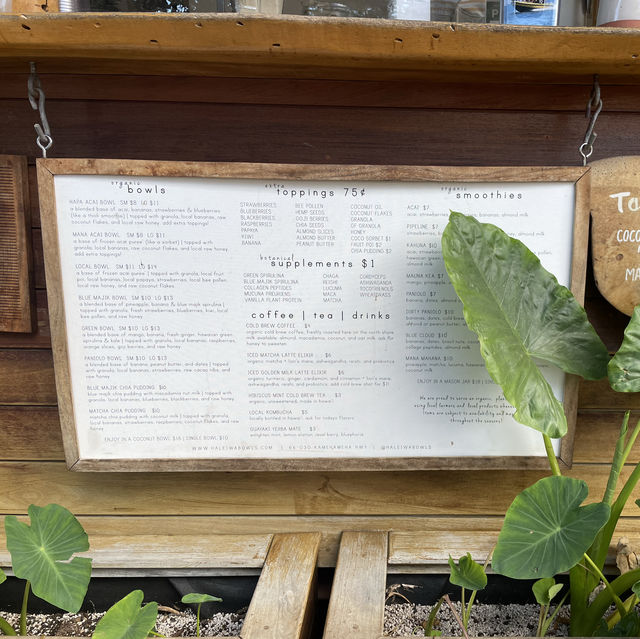 organic
bowls
HAPA ACAI BOWL SM $8 LG $11
a blended base of acai, banana, strawberries & blueberries
(like a thick smoothie) | topped with granola, local bananas, raw
coconut flakes, and local raw honey. add extra toppings!
MANA ACAI BOWL SM $8 LG $11
a base of frozen acai puree (like a sorbet) | topped with
granola, local bananas, raw coconut flakes, and local raw honey.
add extra toppings!
LOCAL BOWL SM $11 LG $14
a base of frozen acai puree | topped with granola, local fruit
local bananas, local papaya, strawberries, local bee pollen,
local raw honey, and raw coconut flakes.
BLUE MAJIK BOWL SM $10 LG $13
a blended base of pineapple, banana, & blue majik spirulina |
topped with granola, fresh strawberries, blueberries, kiwi, local
bee pollen, and raw honey
GREEN BOWL SM $10 LG $13
a blended base of mango, banana, fresh ginger, hawaiian green
spirulina & kale | topped with granola, local bananas, raspberries,
orange slices, goji berries, and raw honey
PANIOLO BOWL SM $10 LG $13
a blended base of banana, peanut butter, and dates | topped
with granola, local bananas, strawberries, raw cacao nibs, and raw
honey
BLUE MAJIK CHIA PUDDING $10
blue majik chia pudding with macadamia nut milk | topped with
granola, local bananas, blueberries, blackberries, and raw honey
MATCHA CHIA PUDDING $10
matcha chia pudding with coconut milk | topped with granola,
local bananas, strawberries, raspberries, coconut flakes, and raw
honey
ENJOY IN A COCONUT BOWL $18 | SINGLE BOWL $10
extra
toppings 75¢
STRAWBERRIES BEE POLLEN COCONUT OIL
BLUEBERRIES HEMP SEEDS COCONUT FLAKES
BLACKBERRIES GOJI BERRIES GRANOLA
RASPBERRIES CHIA SEEDS GF GRANOLA
PAPAYA ALMOND SLICES HONEY
KIWI ALMOND BUTTER COCO SORBET $1
BANANA PEANUT BUTTER FRUIT-POI $2
CHIA PUDDING $2
botanical
supplements $1
GREEN SPIRULINA CHAGA CORDYCEPS
BLUE MAJIK SPIRULINA REISHI ASHWAGANDA
COLLAGEN PEPTIDES LUCUMA TOCOTRIENOLS
MUCUNA PRURIENS MACA WHEATGRASS
VANILLA PLANT PROTEIN MATCHA
coffee | tea | drinks
COLD BREW COFFEE $4
organic cold brew coffee, freshly roasted here on the north shore
milk available: almond, macadamia, coconut, and oat milk. ask for
honey to sweeten.
ICED MATCHA LATTE ELIXIR $6
organic matcha + lion's mane, ashwagandha, reishi, and probiotics
ICED GOLDEN MILK LATTE ELIXIR $6
organic turmeric, ginger, cardamom, and cinnamon + lion's mane,
ashwagandha, reishi, and probiotics. add cold brew shot for $1!
HIBISCUS MINT COLD BREW TEA $3
organic, unsweetened, made in hawaii
LOCAL KOMBUCHA $5
locally bottled in hawaii, ask for todays flavors
GUAYAKI YERBA MATE $3
enlighten mint, lemon elation, revel berry, bluephoria
organic
smoothies
ACAI $7
acai, strawberries, bananas, almond milk
PIPELINE $7
strawberries,
KAHUNA $10
acai,
hawaiian
almond milk
MAUNA KEA $7
mango,
PANIOLO $7
banana, dates, almond
DIRTY PANIOLO $10
banana, dates, cold brew
almond or peanut butter,
BLUE CLOUD $10
banana, dates, blue majik,
collagen peptides, almond milk
MANA MAHANA $10
pineapple, matcha, lucuma,
coconut milk
ENJOY IN A MASON JAR $18 |
We are proud to serve an organic, plant
using local farmers and local products whenever
Items are subject to availability and may
throughout the seasons!
WWW.HALEIWABOWLS.COM | 66-030 KAMEHAMEHA HWY | @HALEIWABOWLS
COCO
MA